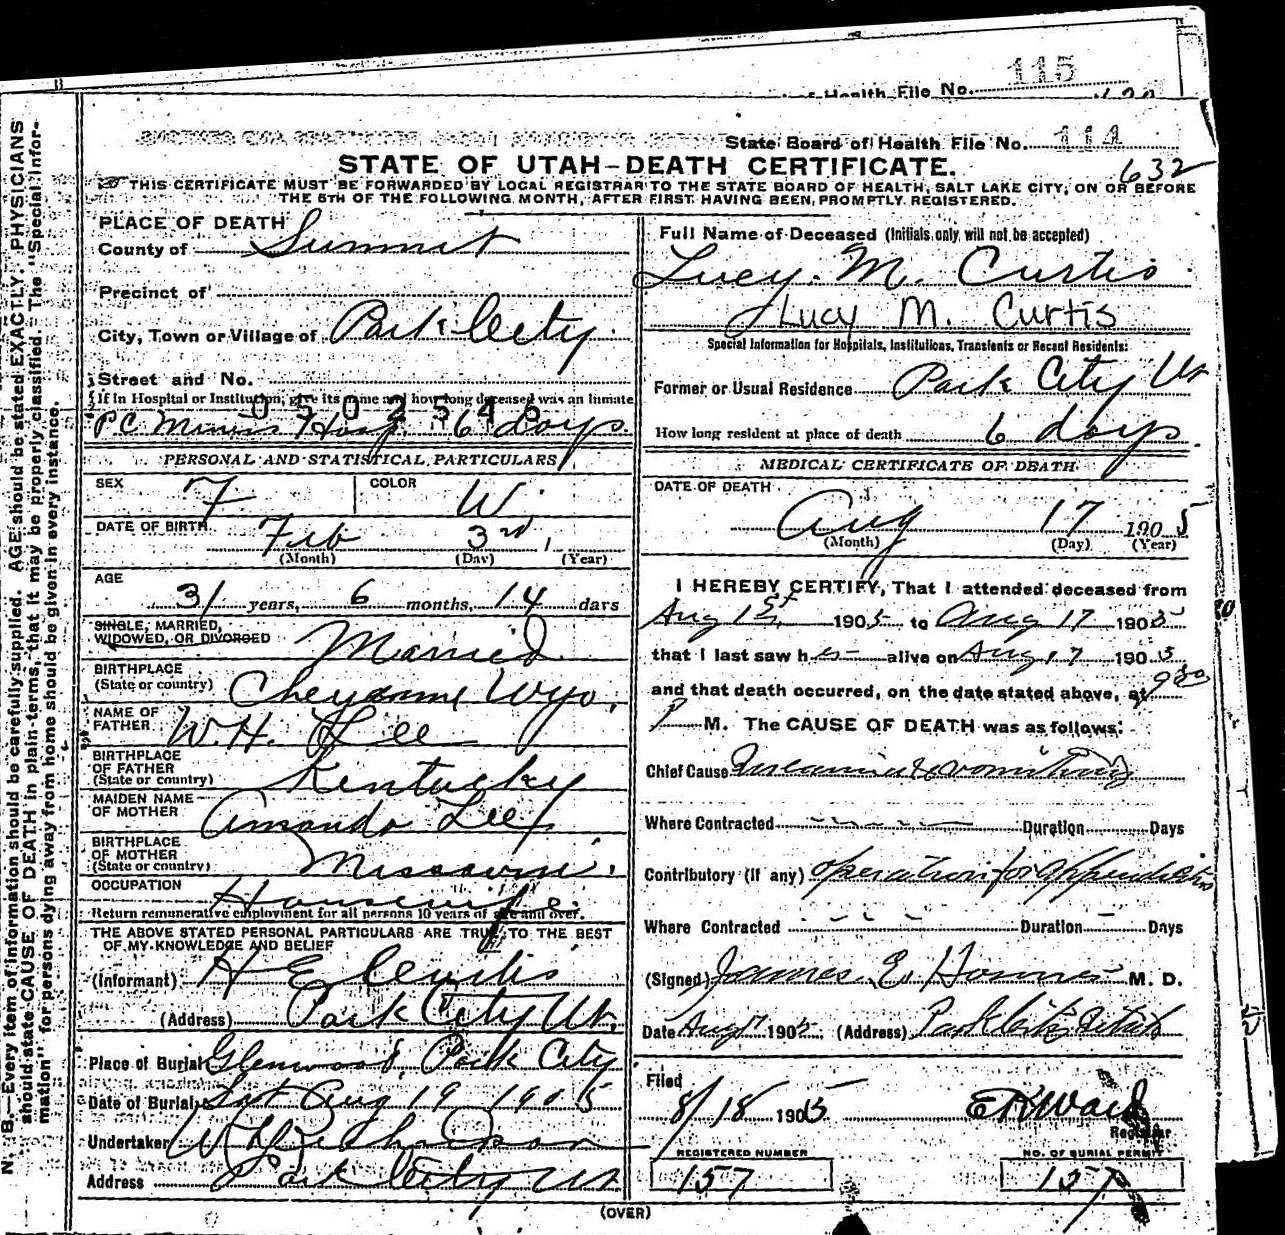 115
of Health File No.
State Board of Health File No. 114
STATE OF UTAH—DEATH CERTIFICATE.
632
THIS CERTIFICATE MUST BE FORWARDED BY LOCAL REGISTRAR TO THE STATE BOARD OF HEALTH, SALT LAKE CITY, ON OR BEFORE
THE 5TH OF THE FOLLOWING MONTH, AFTER FIRST HAVING BEEN PROMPTLY REGISTERED.
N. B.—Every item of information should be carefully supplied. AGE should be stated EXACTLY. PHYSICIANS
should state CAUSE OF DEATH in plain terms, that it may be properly classified. The "Special Infor-
mation" for persons dying away from home should be given in every instance.
PLACE OF DEATH
County of Summit
Precinct of
City, Town or Village of Park City
Street and No.
If in Hospital or Institution, give its name and how long deceased was an inmate
0502546
P C Miners Hosp. 6 days.
PERSONAL AND STATISTICAL PARTICULARS
SEX F COLOR W.
DATE OF BIRTH
Feb 3rd, 1
(Month) (Day) (Year)
AGE
31 years, 6 months, 14 days
SINGLE, MARRIED,
WIDOWED, OR DIVORCED Married
BIRTHPLACE
(State or country) Cheyenne Wyo.
NAME OF
FATHER W. H. Lee
BIRTHPLACE
OF FATHER
(State or country) Kentucky
MAIDEN NAME
OF MOTHER Amanda Lee
BIRTHPLACE
OF MOTHER
(State or country) Missouri.
OCCUPATION Housewife
Return remunerative employment for all persons 10 years of age and over.
THE ABOVE STATED PERSONAL PARTICULARS ARE TRUE TO THE BEST
OF MY KNOWLEDGE AND BELIEF
(Informant) H E Curtis
(Address) Park City Ut.
Place of Burial Glenwood, Park City
Date of Burial Sat Aug 19 1905
Undertaker W H Richardson
Address Park City Ut
Full Name of Deceased (Initials only will not be accepted)
Lucy. M. Curtis
Lucy M. Curtis
Special Information for Hospitals, Institutions, Transients or Recent Residents:
Former or Usual Residence Park City Ut
How long resident at place of death 6 days.
MEDICAL CERTIFICATE OF DEATH
DATE OF DEATH
Aug 17 1905
(Month) (Day) (Year)
I HEREBY CERTIFY, That I attended deceased from
Aug 1st, 1905 to Aug 17 1905
that I last saw her alive on Aug 17 1905
and that death occurred, on the date stated above, at 9 30
P M. The CAUSE OF DEATH was as follows:
Chief Cause vomiting
Where Contracted Duration Days
Contributory (if any) operation for appendicitis
Where Contracted Duration Days
(Signed) James E. M. D.
Date Aug 1905 (Address) Park City Utah
Filed
8/18 1905 E R Ward
Registrar
REGISTERED NUMBER
157
NO. OF BURIAL PERMIT
157
(OVER)